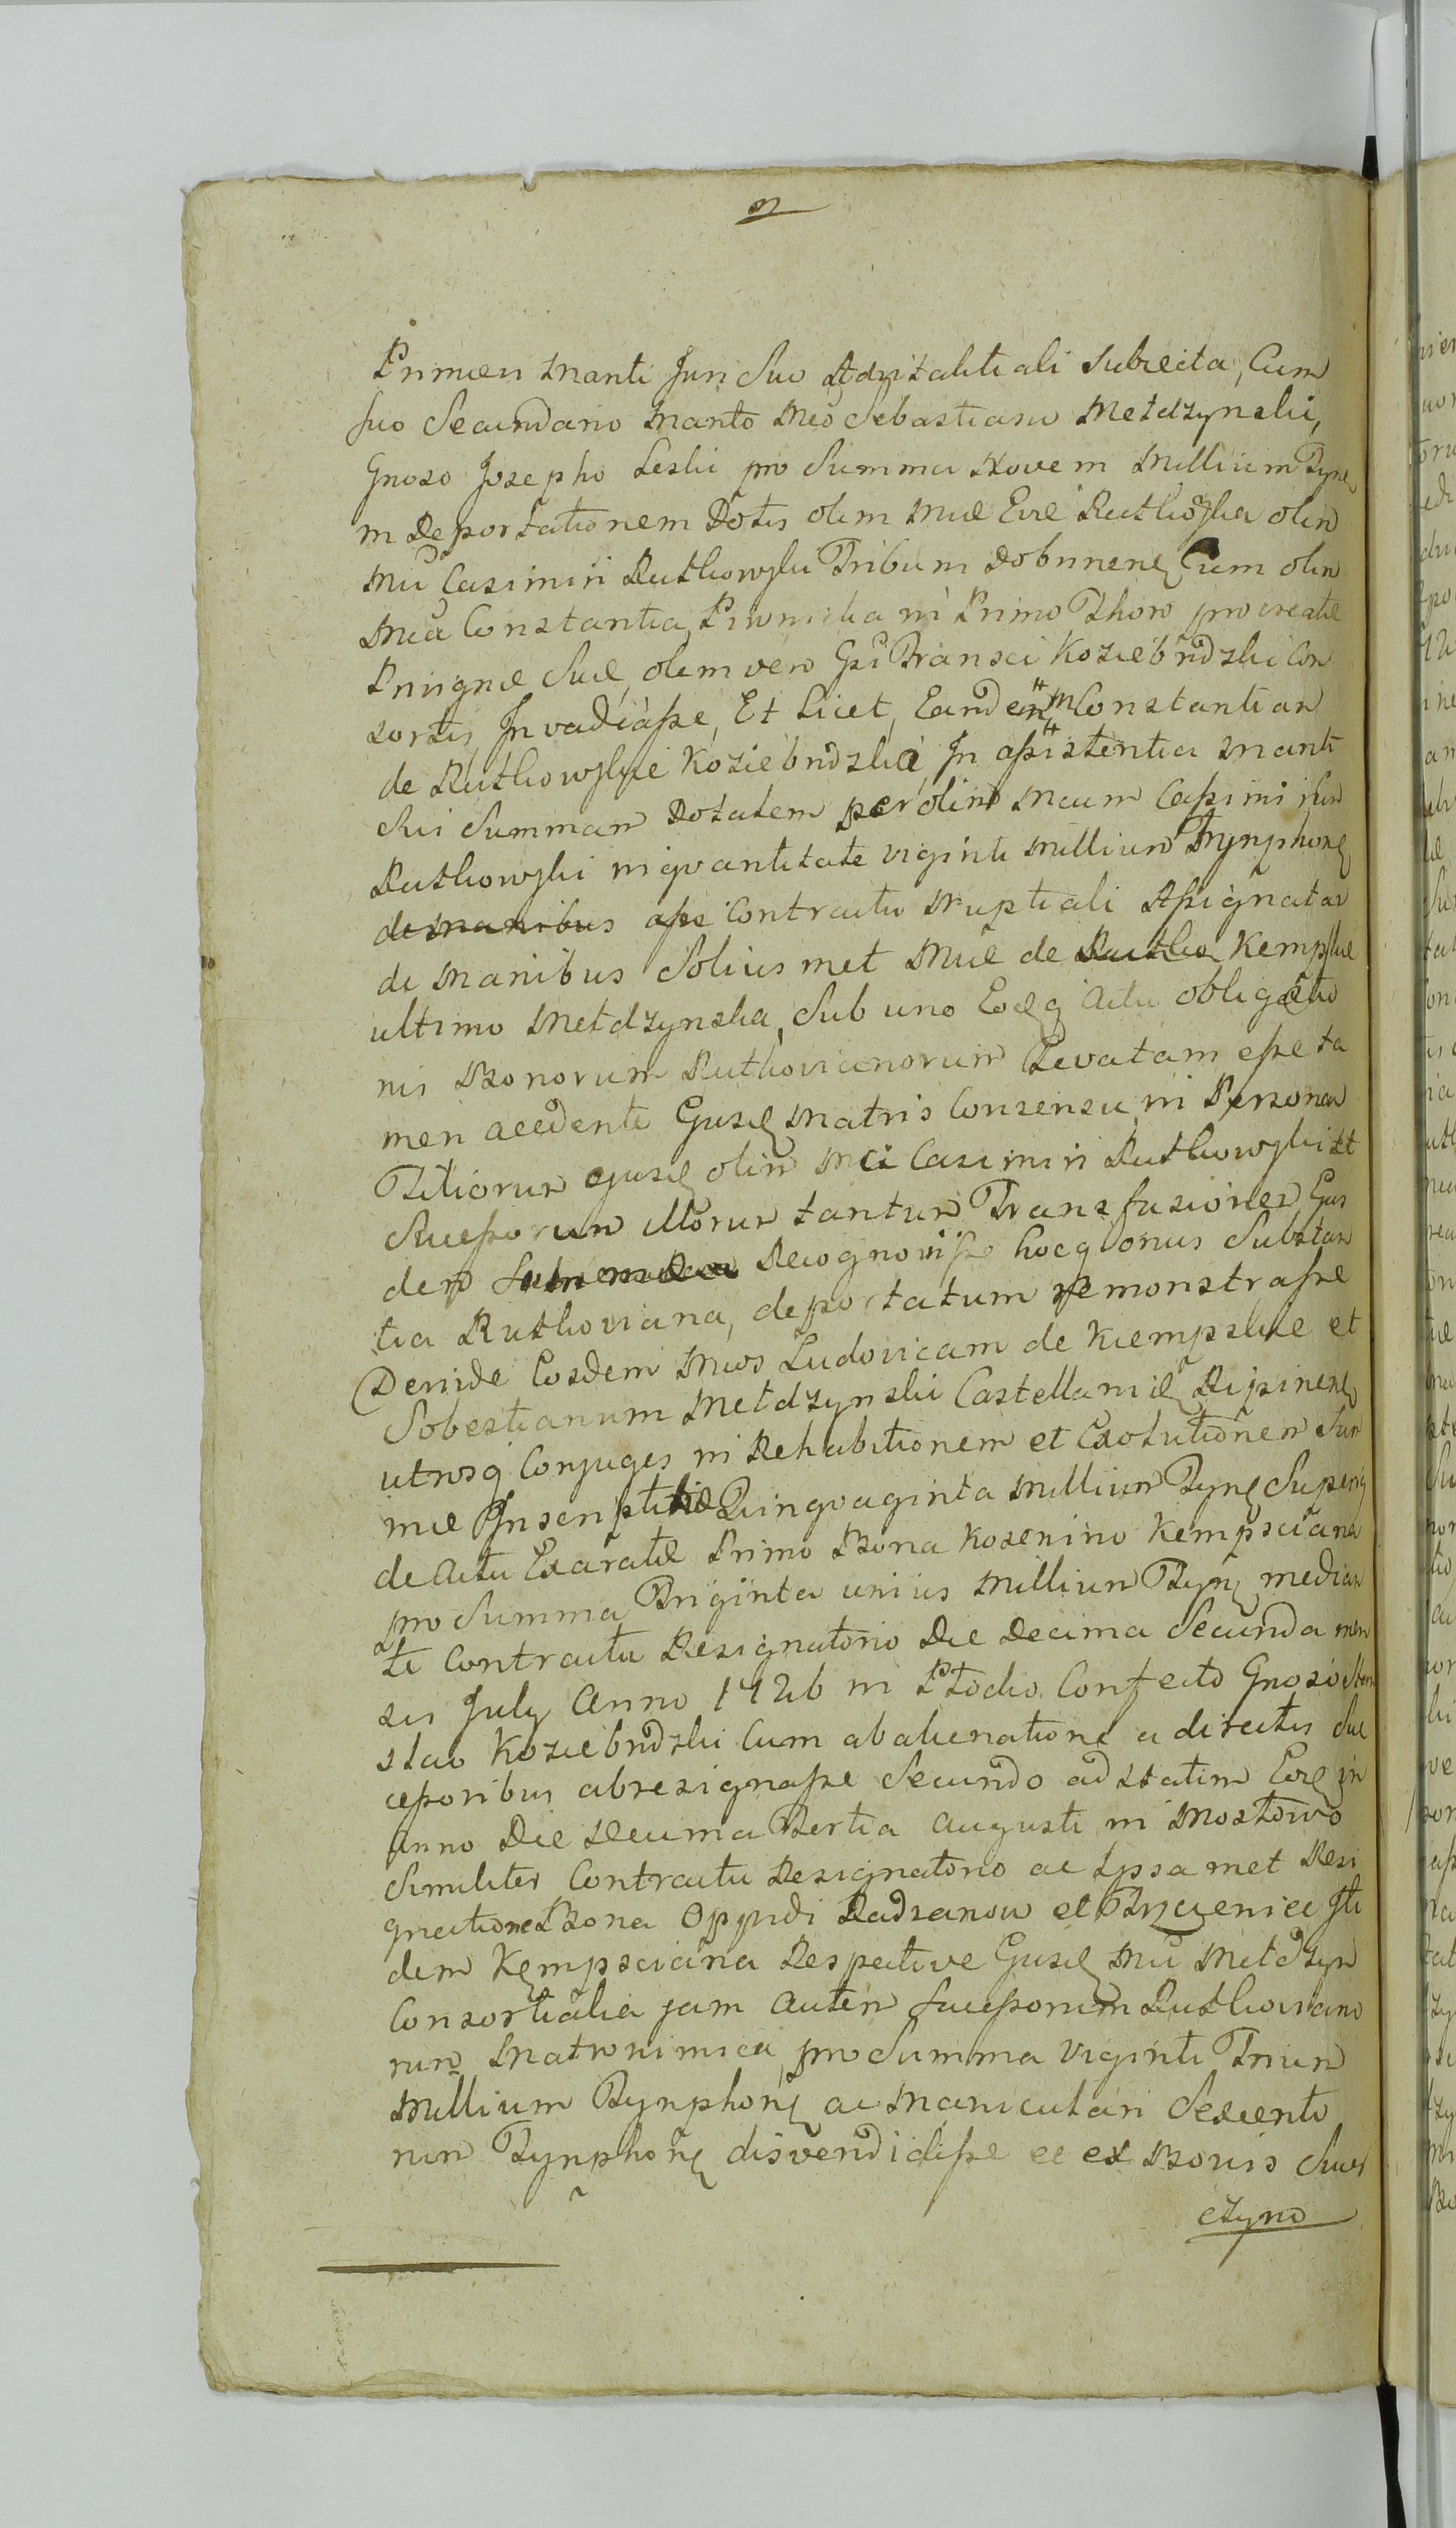 Primieri Mariti Juri Suo Advitalitiali Subiecta, Cum
suo Secundario Marito Mco Sebastiano Metdzynski,
Gnoso Josepho Leski pro Summa Novem Millium Tyne
in Deportationem Dotis olim Mae Evae Rutkowska olim
Mci Casimiri Rutkowski Tribuni Dobrinen Cum olim
Mca Constantia Piwnicka in Primo Thoro procreatae
Privignae Suae, olim vero Gsi Fransci Koziebrodzki Con
sortis, Invadiasse, Et Licet, Eandem Constantiam
de Rutkowskie Koziebrodzka In assistentia Mariti
Sui Summam Dotalem per olim Mcum Casimirum
Rutkowski in qvantitate viginti Millium Tymphonę
de manibus a se Contractu Nuptiali Assignatam
de Manibus Solius met Mae de Rutko Kempskie
ultimo Metdzynska, Sub uno Eodq Actu obligatio
nis Bonorum Rutkovianorum Levatam esse ta
men accedente Ejusd Matris Consensu in Persona
Filiorum ejusd olim Mci Casimiri Rutkowski et
Successorum illorum tantum Transfusiones Ejus
dem Recognovisse hocq onus Substan
tia Rutkoviana, deportatum remonstrasse
Deinde Eosdem Mcos Ludovicam de Kiempskie et
Sobestianum Metdzynski Castellanid Ripinens
utrosq Conjuges in Rehabitionem et Exolutionem Sum
mae Inscriptitiae Quinqvaginta Millium Tyne Superiq
de Actu Exaratae Primo Bona Kosenino Kempsciana
pro Summa Triginta unius Millium Tynę median
te Contractu Resignatorio Die Decima Secunda men
sis July Anno 1726 in Ptocko Confecto Gnoso Stani
slao Koziebrodzki Cum abalienatione a directis Suc
cessoribus abresignasse Secundo ad statim Eod in
anno Die Decima Tertia Augusti in Mostowo
Similiter Contractu Resignatorio ac Ipsa met Resi
gnatione Bona Oppidi Radzanow et Trzcieniec Iti
dem Kempsciana Respective Ejusd Mci Metdzyn
Consortialia jam autem Successorum Rutkoviano
rum Matronimica, pro Summa Viginti Trium
Millium Tynphonę ac Maniculari Sexcento
rum Tynphonę disvendidisse ac ex Bonis Suis